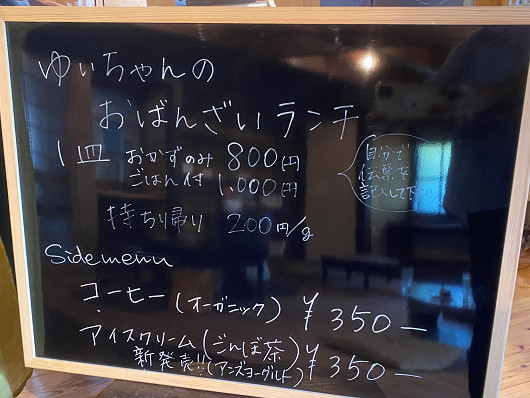 ゆぃちゃんの
おばんざいランチ
1皿 おかずのみ 800円
ごはん付 1,000円
自分で
伝票を
記入して下さい
持ち帰り 200円/g
Sidemenu
コーヒー(オーガニック) ¥350—
アイスクリーム(ごんぼ茶)
新発売!!(アンズヨーグルト) ¥350—